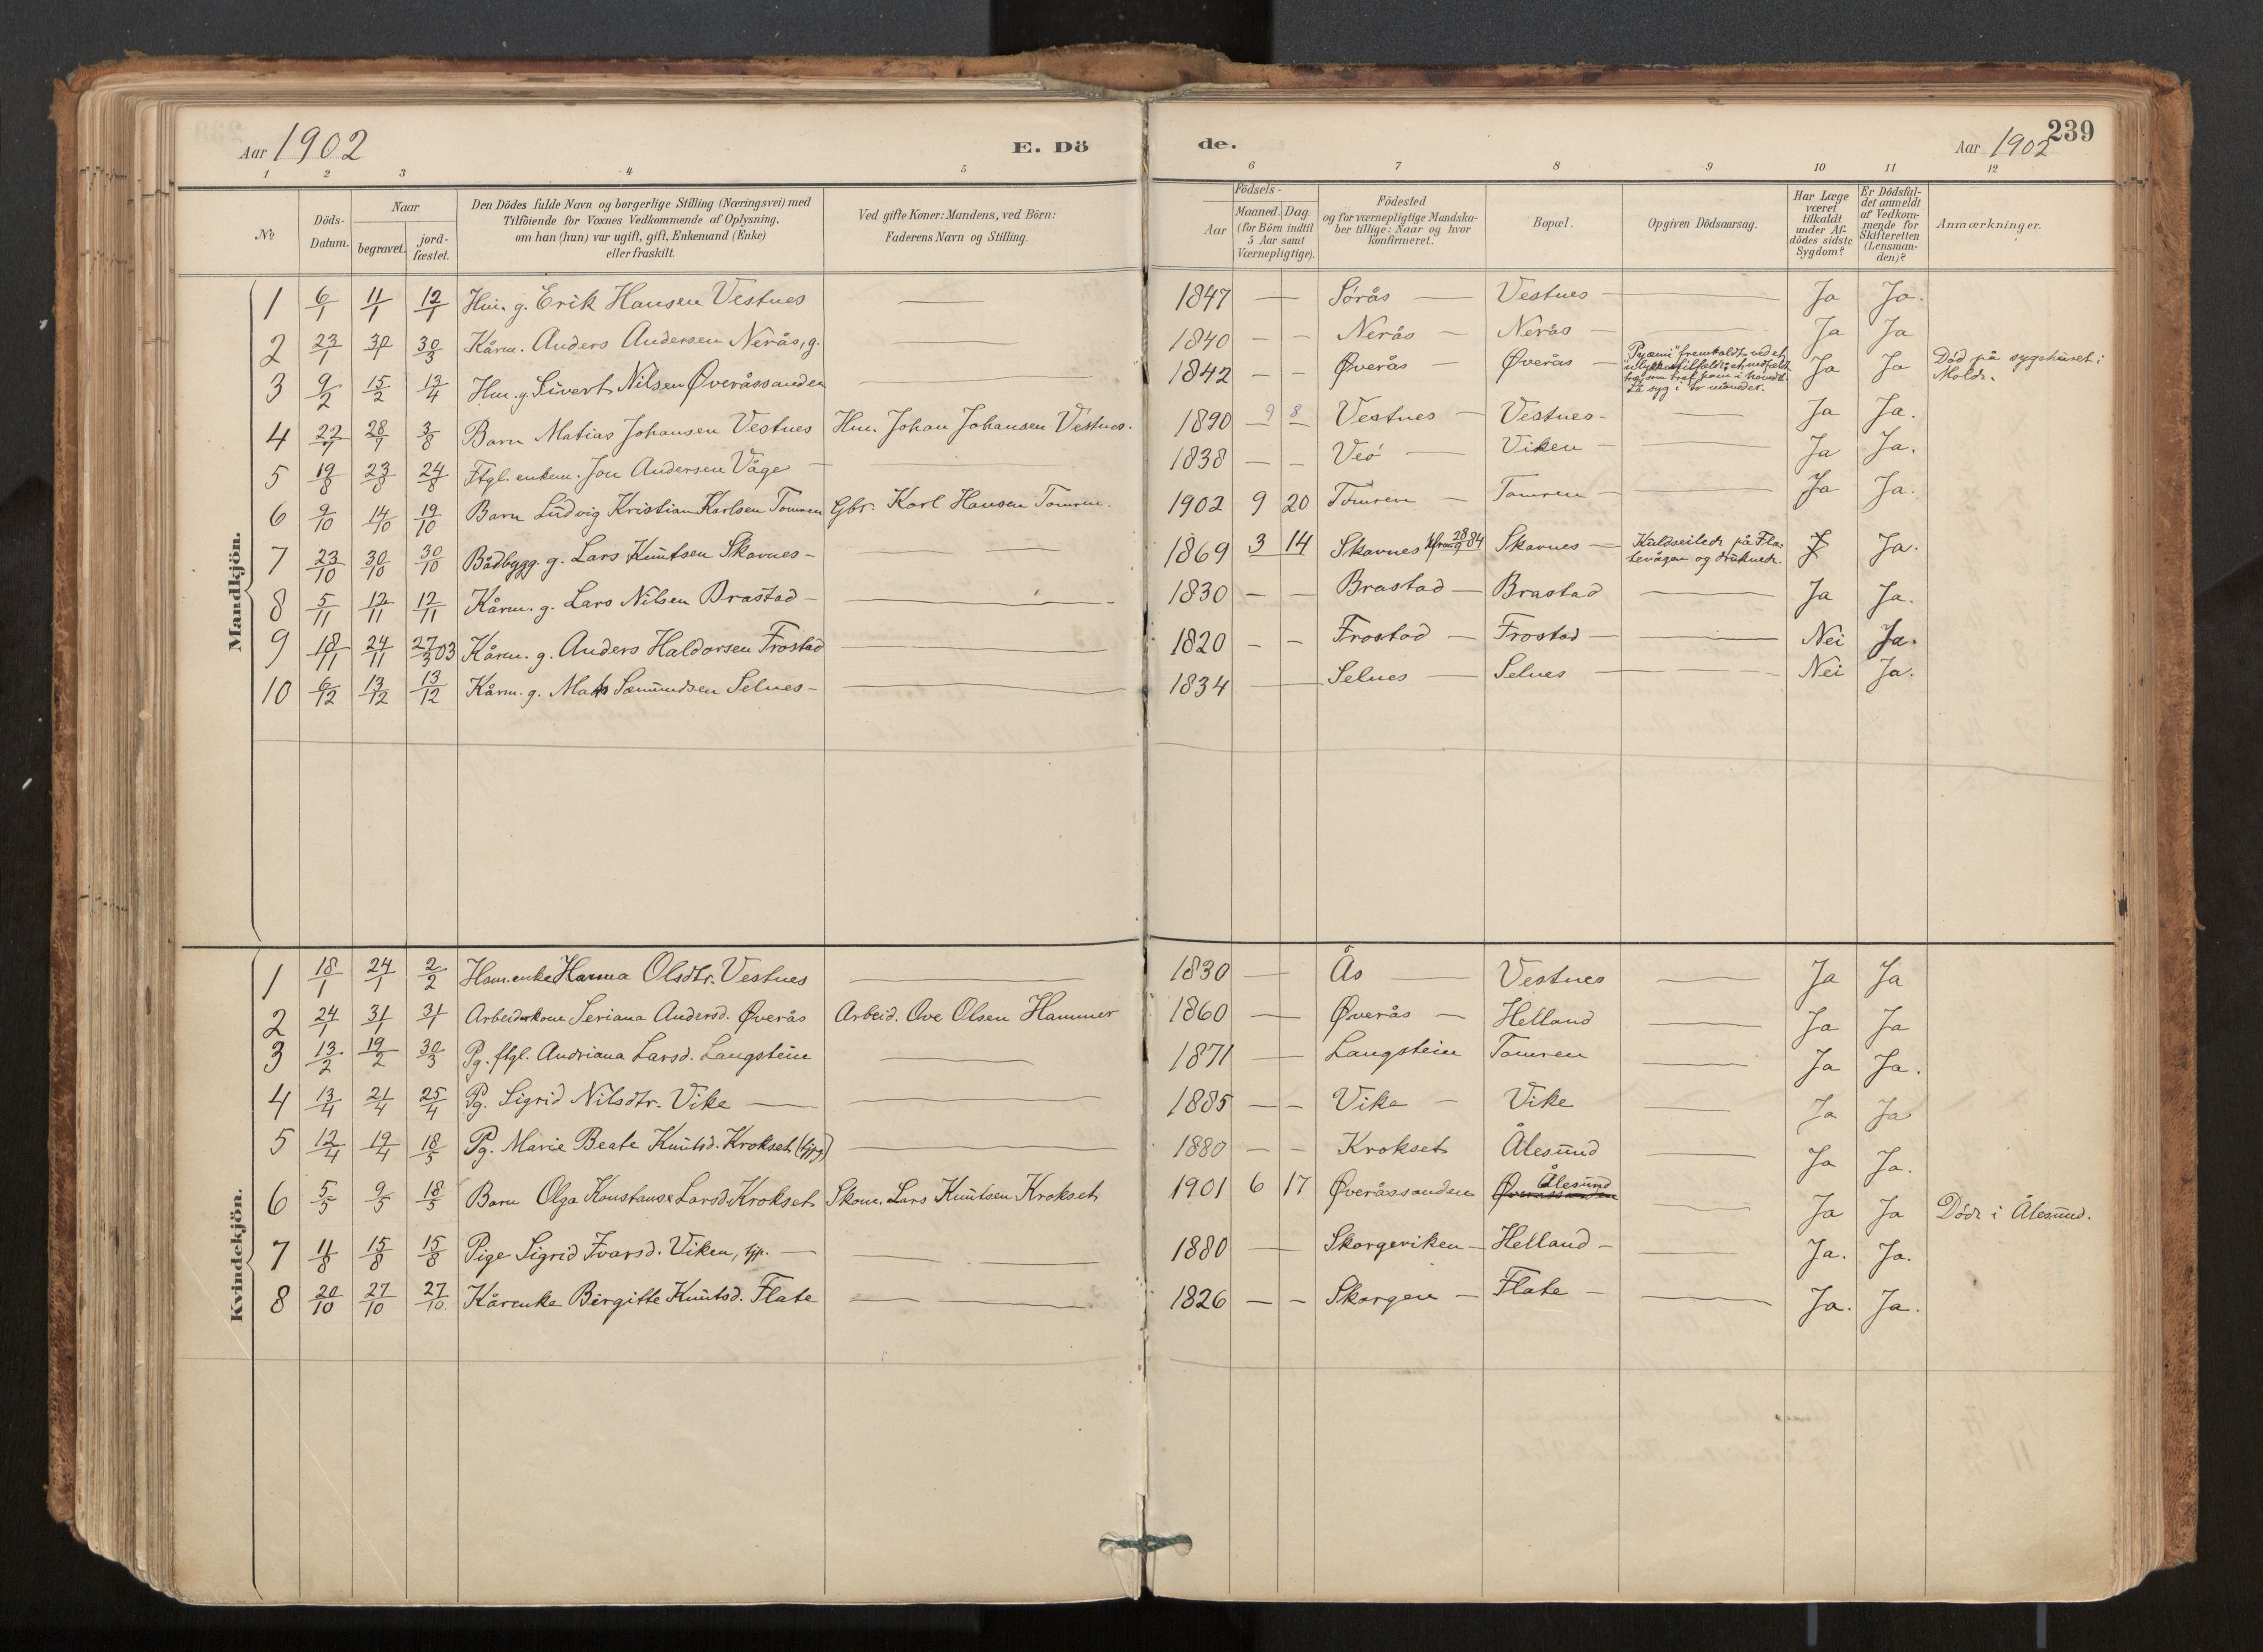 Aar 1902 E. Dö de. Aar 1902 239
1 2 3 4 5 6 7 8 9 10 11 12
№
Döds-Datum.
Naar
begravet.
jord-fæstet.
Den Dödes fulde Navn og borgerlige Stilling (Næringsvei) med
Tilföiende for Voxnes Vedkommende af Oplysning,
om han (hun) var ugift, gift, Enkemand (Enke)
eller fraskilt.
Ved gifte Koner: Mandens, ved Börn:
Faderens Navn og Stilling.
Födsels-
Aar
Maaned. Dag.
(for Börn indtil
5 Aar samt
Værnepligtige).
Födested
og for værnepligtige Mandska-
ber tillige: Naar og hvor
konfirmeret.
Bopæl.
Opgiven Dödsaarsag.
Har Læge
været
tilkaldt
under Af-
dödes sidste
Sygdom?
Er Dödsfal-
det anmeldt
af Vedkom-
mende for
Skifteretten
(Lensman-
den)?
Anmærkninger.
Mandkjön.
1 6/1 11/1 12/1 Hm. g. Erik Hansen Vestnes — 1847 — Sörås — Vestnes — Ja Ja.
2 23/1 30/1 30/3 Kårm. Anders Andersen Nerås, g. — 1840 — — Nerås — Nerås — Ja Ja
3 9/2 15/2 13/4 Hm. g. Sivert Nilsen Øveråssanden — 1842 — — Øverås — Øverås — "Pyæmi" fremkaldt ved et
ulykkestilfælde; et nedfældt
træ, som traf ham i hovedet.
Lå syg i to måneder. Ja Ja Död på sygehuset i
Molde.
4 22/7 28/7 3/8 Barn Matias Johansen Vestnes Hm. Johan Johansen Vestnes. 1890 9 8 Vestnes — Vestnes — Ja Ja.
5 19/8 23/8 24/8 Ftgl. enkem. Jon Andersen Våge — 1838 — — Veö — Viken — Ja Ja.
6 9/10 14/10 19/10 Barn Ludvig Kristian Karlsen Tomren Gbr. Karl Hansen Tomren. 1902 9 20 Tomren — Tomren — Ja Ja.
7 23/10 30/10 30/10 Bådbygg. g. Lars Knutsen Skavnes — 1869 3 14 Skavnes kfrm 28/9 84 Skavnes — Kuldseilede på Fla-
tevågen og druknede. Ja.
8 5/11 12/11 12/11 Kårm. g. Lars Nilsen Brastad — 1830 — — Brastad — Brastad — Ja Ja.
9 18/11 24/11 27/3 03 Kårm. g. Anders Haldorsen Frostad — 1820 — — Frostad — Frostad — Nei Ja.
10 6/12 13/12 13/12 Kårm. g. Mats Sæmundsen Selnes — 1834 — Selnes — Selnes — Nei Ja.
Kvindekjön.
1 18/1 24/1 2/2 Hsm. enke Hanna Olsdtr. Vestnes — 1830 — Ås — Vestnes — Ja Ja
2 24/1 31/1 31/1 Arbeiderkone Seriana Andersd. Øverås Arbeid. Ove Olsen Hammer 1860 — Øverås — Helland — Ja Ja
3 13/2 19/2 30/3 Pg. ftgl. Andriana Larsd. Langstein — 1871 — Langstein Tomren — Ja Ja.
4 13/4 21/4 25/4 Pg. Sigrid Nilsdtr. Vike — 1885 — — Vike — Vike — Ja Ja
5 12/4 19/4 18/5 Pg. Marie Beate Knutsd. Krokset (tjpg) — 1880 — — Krokset Ålesund — Ja Ja.
6 5/5 9/5 18/5 Barn Olga Konstanse Larsd. Krokset Skom. Lars Knutsen Krokset 1901 6 17 Øveråssanden Øveråssanden Ålesund — Ja Ja Döde i Ålesund.
7 11/8 15/8 15/8 Pige Sigrid Ivarsd. Viken, tjp. — 1880 — Skorgeviken — Helland — Ja. Ja.
8 20/10 27/10 27/10 Kårenke Birgitte Knutsd. Flate — 1826 — — Skorgen — Flate — Ja. Ja.